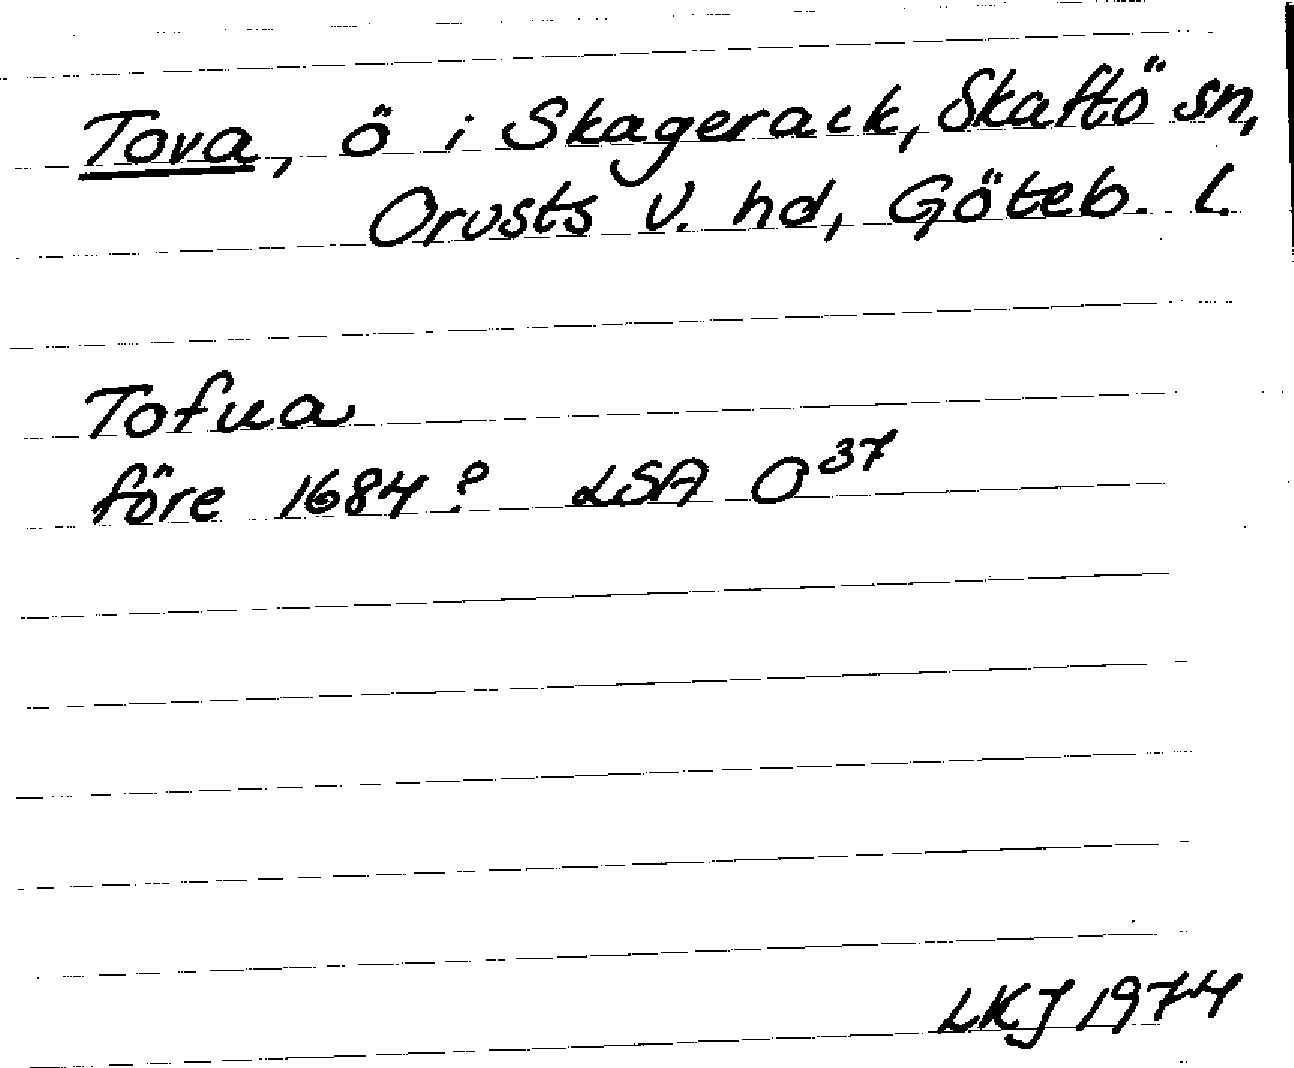 Tova, ö i Skagerack, Skaftö sn,
Orusts V. hd, Göteb. l.
Tofua
före 1684? LSA O37
LKJ 1974